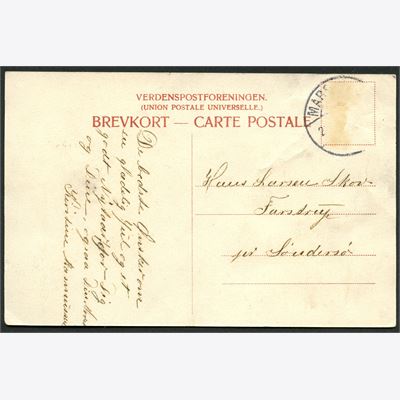 VERDENSPOSTFORENINGEN.
(UNION POSTALE UNIVERSELLE.)
BREVKORT — CARTE POSTALE
MARS
2
De bedste Ønsker om
en glædelig Jul og et
godt Nytaar for Dig
og Dine, ogsaa
Kirstine Rasmussen
Hans Larsen Skov
Farstrup
pr Søndersø